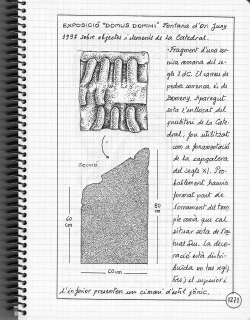 EXPOSICIÓ "DOMUS DOMINI" Fontana d'Or. Juny
1997 sobre objectes i elements de la Catedral.
-Fragment d'una cor-
nisa romana del se-
gle I dC. El carreu de
pedra sorrenca és de
Domeny. Aparegut
sota l'enllosat del
presbiteri de la Cate-
dral, fou utilitzat
com a fonamentació
de la capçalera
del segle XI. Pro-
bablement havia
format part de
l'ornament del tem-
ple romà que cal
situar sota de l'ac-
tual Seu. La deco-
ració està distri-
buïda en tres regis-
tres, el superior i
l'inferior presenten un cimaci d'estil jònic.
Secció
60
cm
80
cm
60 cm
1271